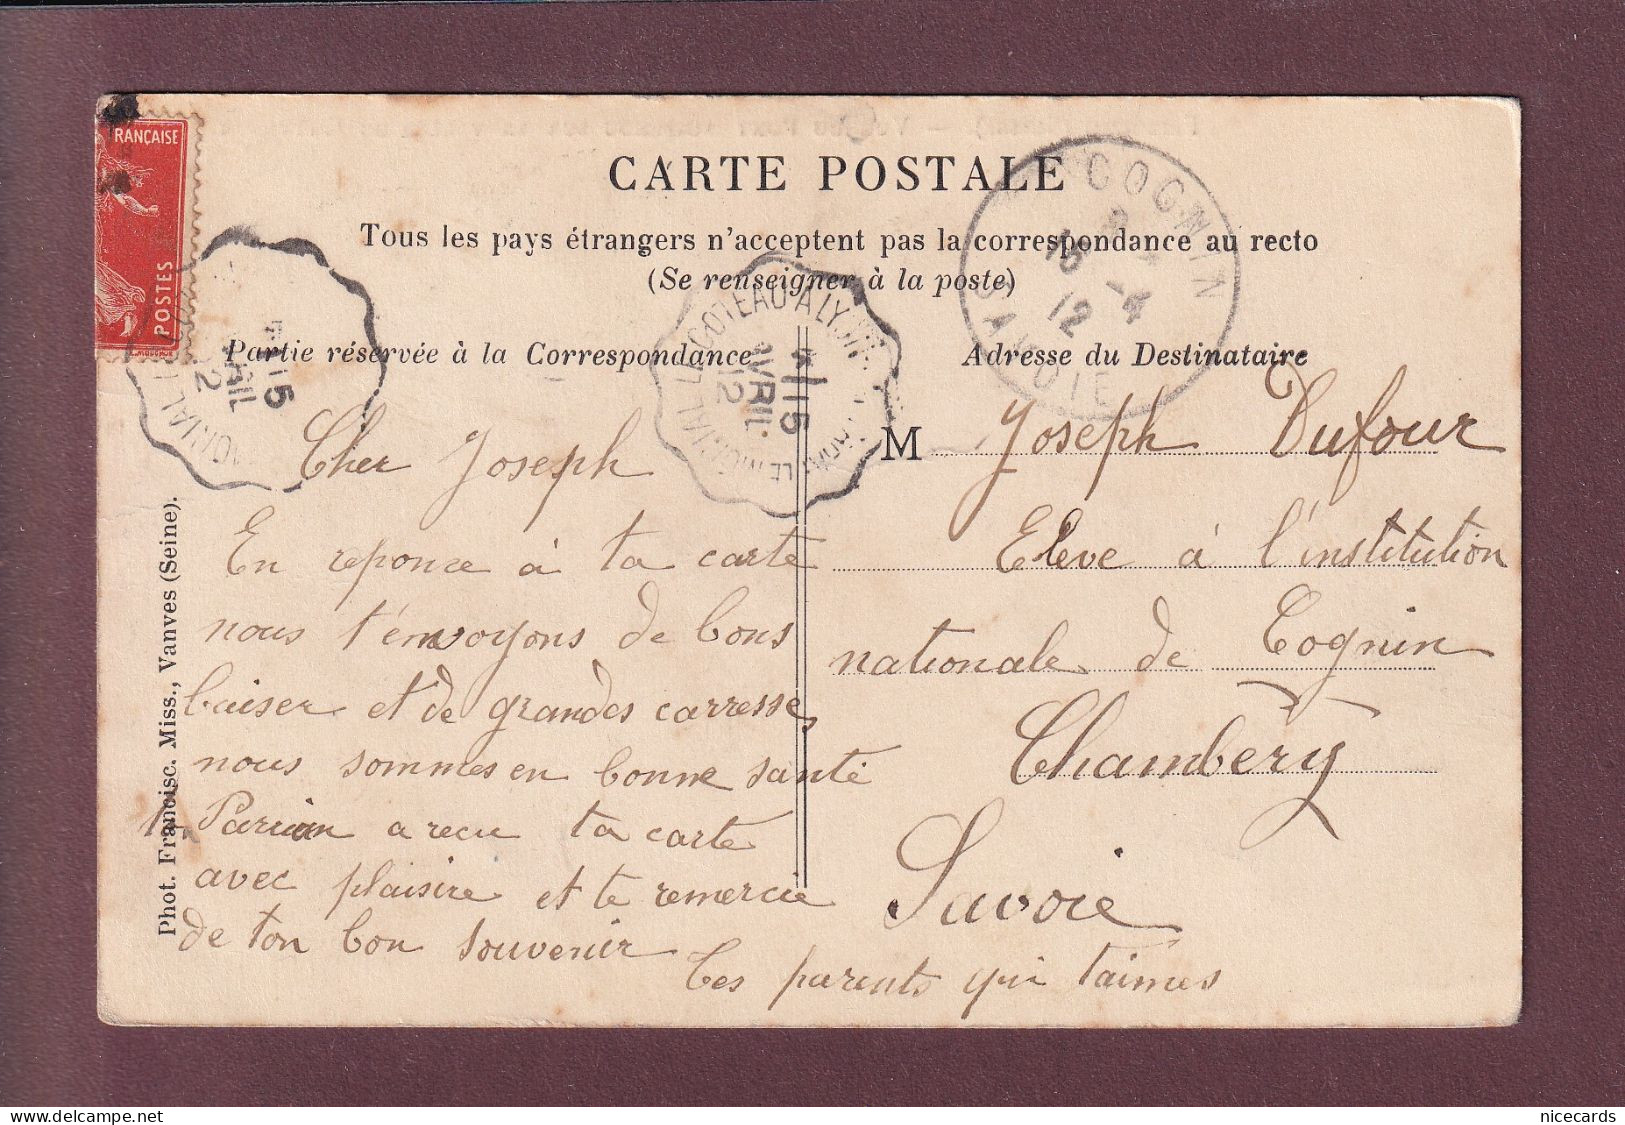 RANÇAISE
POSTES
CARTE POSTALE
Tous les pays étrangers n'acceptent pas la correspondance au recto
(Se renseigner à la poste)
Partie réservée à la Correspondance
Adresse du Destinataire
COGNIN
15 -4
12
SAVOIE
LE COTEAU A LYON
15
AVRIL
12
15
RIL
2
Cher Joseph
En reponce à ta carte
nous t'envoyons de bons
baiser et de grandes carresses
nous sommes en bonne santé
a recu ta carte
avec plaisire et te remercie
de ton bon souvenir
Tes parents qui t'aimes
M Joseph Dufour
Eleve à l'institution
nationale de Cognin
Chambéry
Savoie
Phot. Francisc. Miss., Vanves (Seine).
Delcampe.net
nicecards